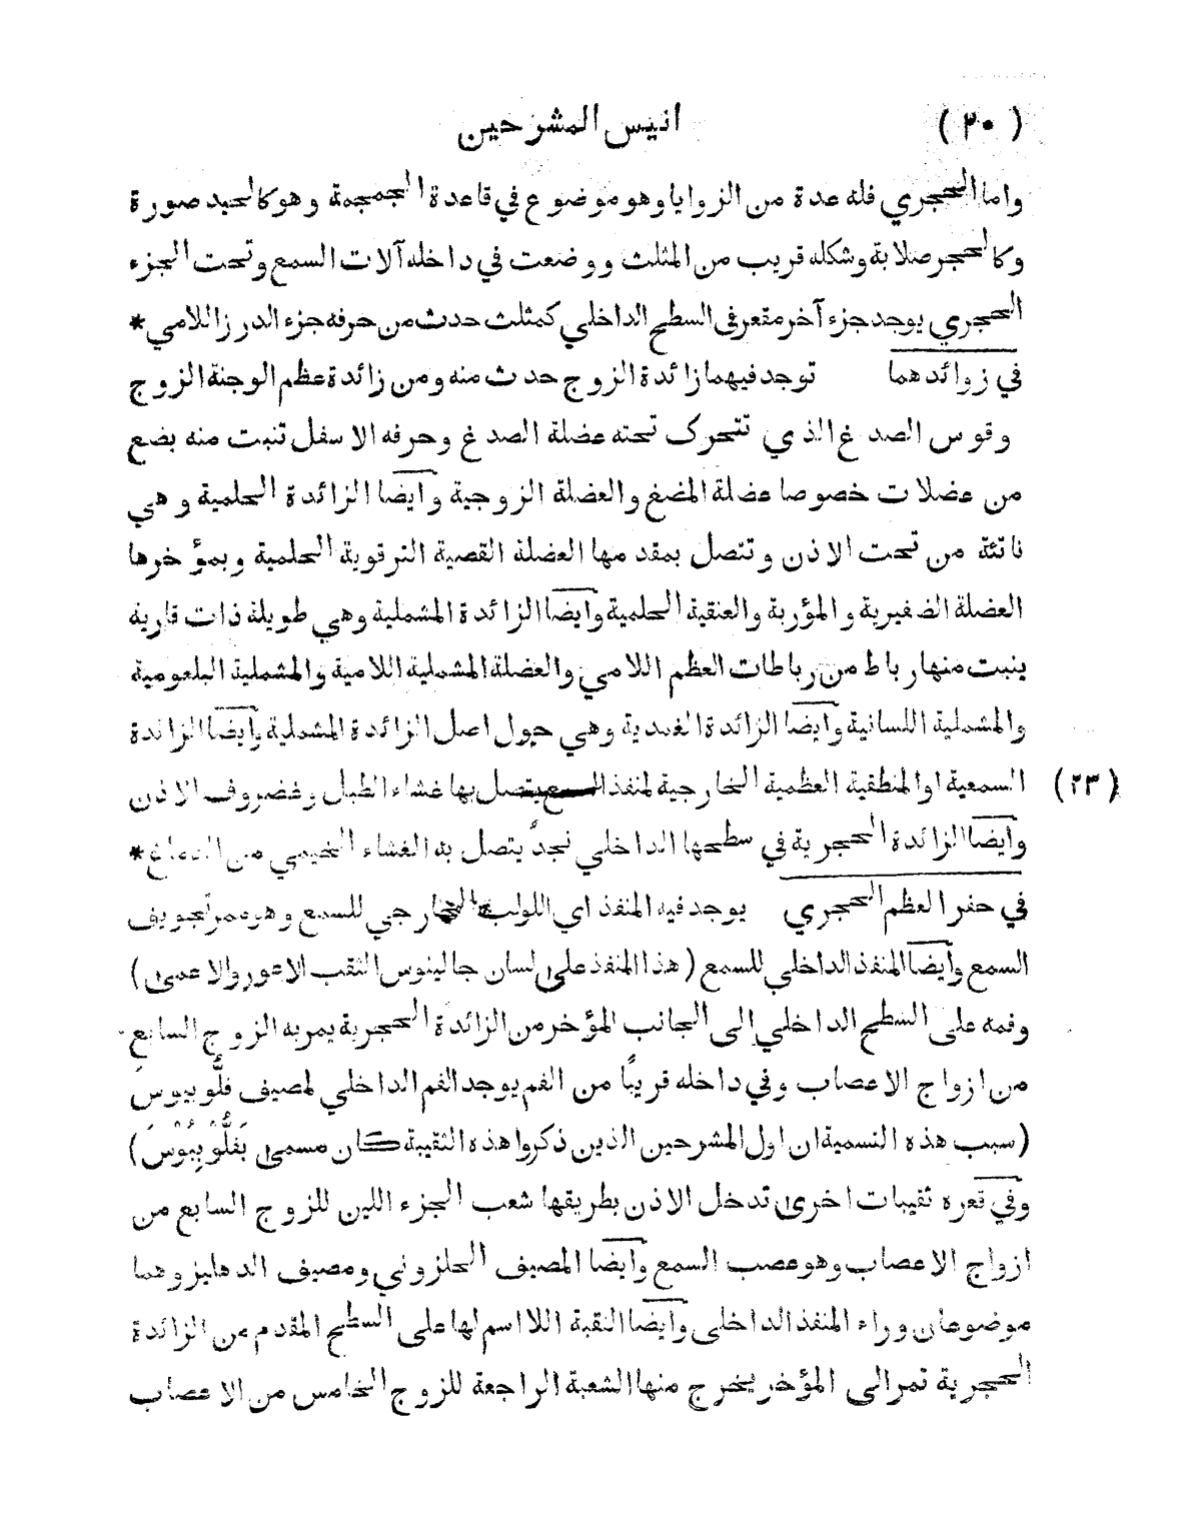 ( ٢٠ ) انيس المشرحين
واما الحجري فله عدة من الزوايا وهو موضوع في قاعدة الجمجمة وهو كالحيد صورة
وكالحجر صلابة وشكله قريب من المثلث ووضعت في داخله آلات السمع وتحت الجزء
الحجري يوجد جزء آخر مقعر في السطح الداخلي كمثلث حدث من حرفه جزء الدرز اللامي *
في زوائدهما توجد فيهما زائدة الزوج حدث منه ومن زائدة عظم الوجنة الزوج
وقوس الصدغ الذي تتحرك تحته عضلة الصدغ وحرفه الاسفل تنبت منه بضع
من عضلات خصوصا عضلة المضغ والعضلة الزوجية وايضا الزائدة الحلمية وهي
ناتئة من تحت الاذن وتتصل بمقدمها العضلة القصية الترقوية الحلمية وبمؤخرها
العضلة الضفيرية والمؤربة والعنقية الحلمية وايضا الزائدة المشملية وهي طويلة ذات قارية
ينبت منها رباط من رباطات العظم اللامي والعضلة المشملية اللامية والمشملية البلعومية
والمشملية اللسانية وايضا الزائدة الغمدية وهي حول اصل الزائدة المشملية وايضا الزائدة
السمعية او المنطقية العظمية الخارجية لمنفذ السمع يتصل بها غشاء الطبل وغضروف الاذن
( ٢٣ )
وايضا الزائدة الحجرية في سطحها الداخلي نجدٌ يتصل به الغشاء الخيمي من الدماغ *
في حفر العظم الحجري يوجد فيه المنفذ اي اللولب الخارجي للسمع وهو ممر تجويف
السمع وايضا المنفذ الداخلي للسمع ( هذا المنفذ على لسان جالينوس الثقب الاعور والاعمى )
وفمه على السطح الداخلي الى الجانب المؤخر من الزائدة الحجرية يمر به الزوج السابع
من ازواج الاعصاب وفي داخله قريبًا من الفم يوجد الفم الداخلي لمصيف فلُّوبيوسَ
( سبب هذه التسمية ان اول المشرحين الذين ذكروا هذه الثقيبة كان مسمى بَفَلُّوْبِيُوْسَ )
وفي قعره ثقيبات اخرى تدخل الاذن بطريقها شعب الجزء اللين للزوج السابع من
ازواج الاعصاب وهو عصب السمع وايضا المصيف الحلزوني ومصيف الدهليز وهما
موضوعان وراء المنفذ الداخلى وايضا الثقبة اللا اسم لها على السطح المقدم من الزائدة
الحجرية تمر الى المؤخر يخرج منها الشعبة الراجعة للزوج الخامس من الاعصاب